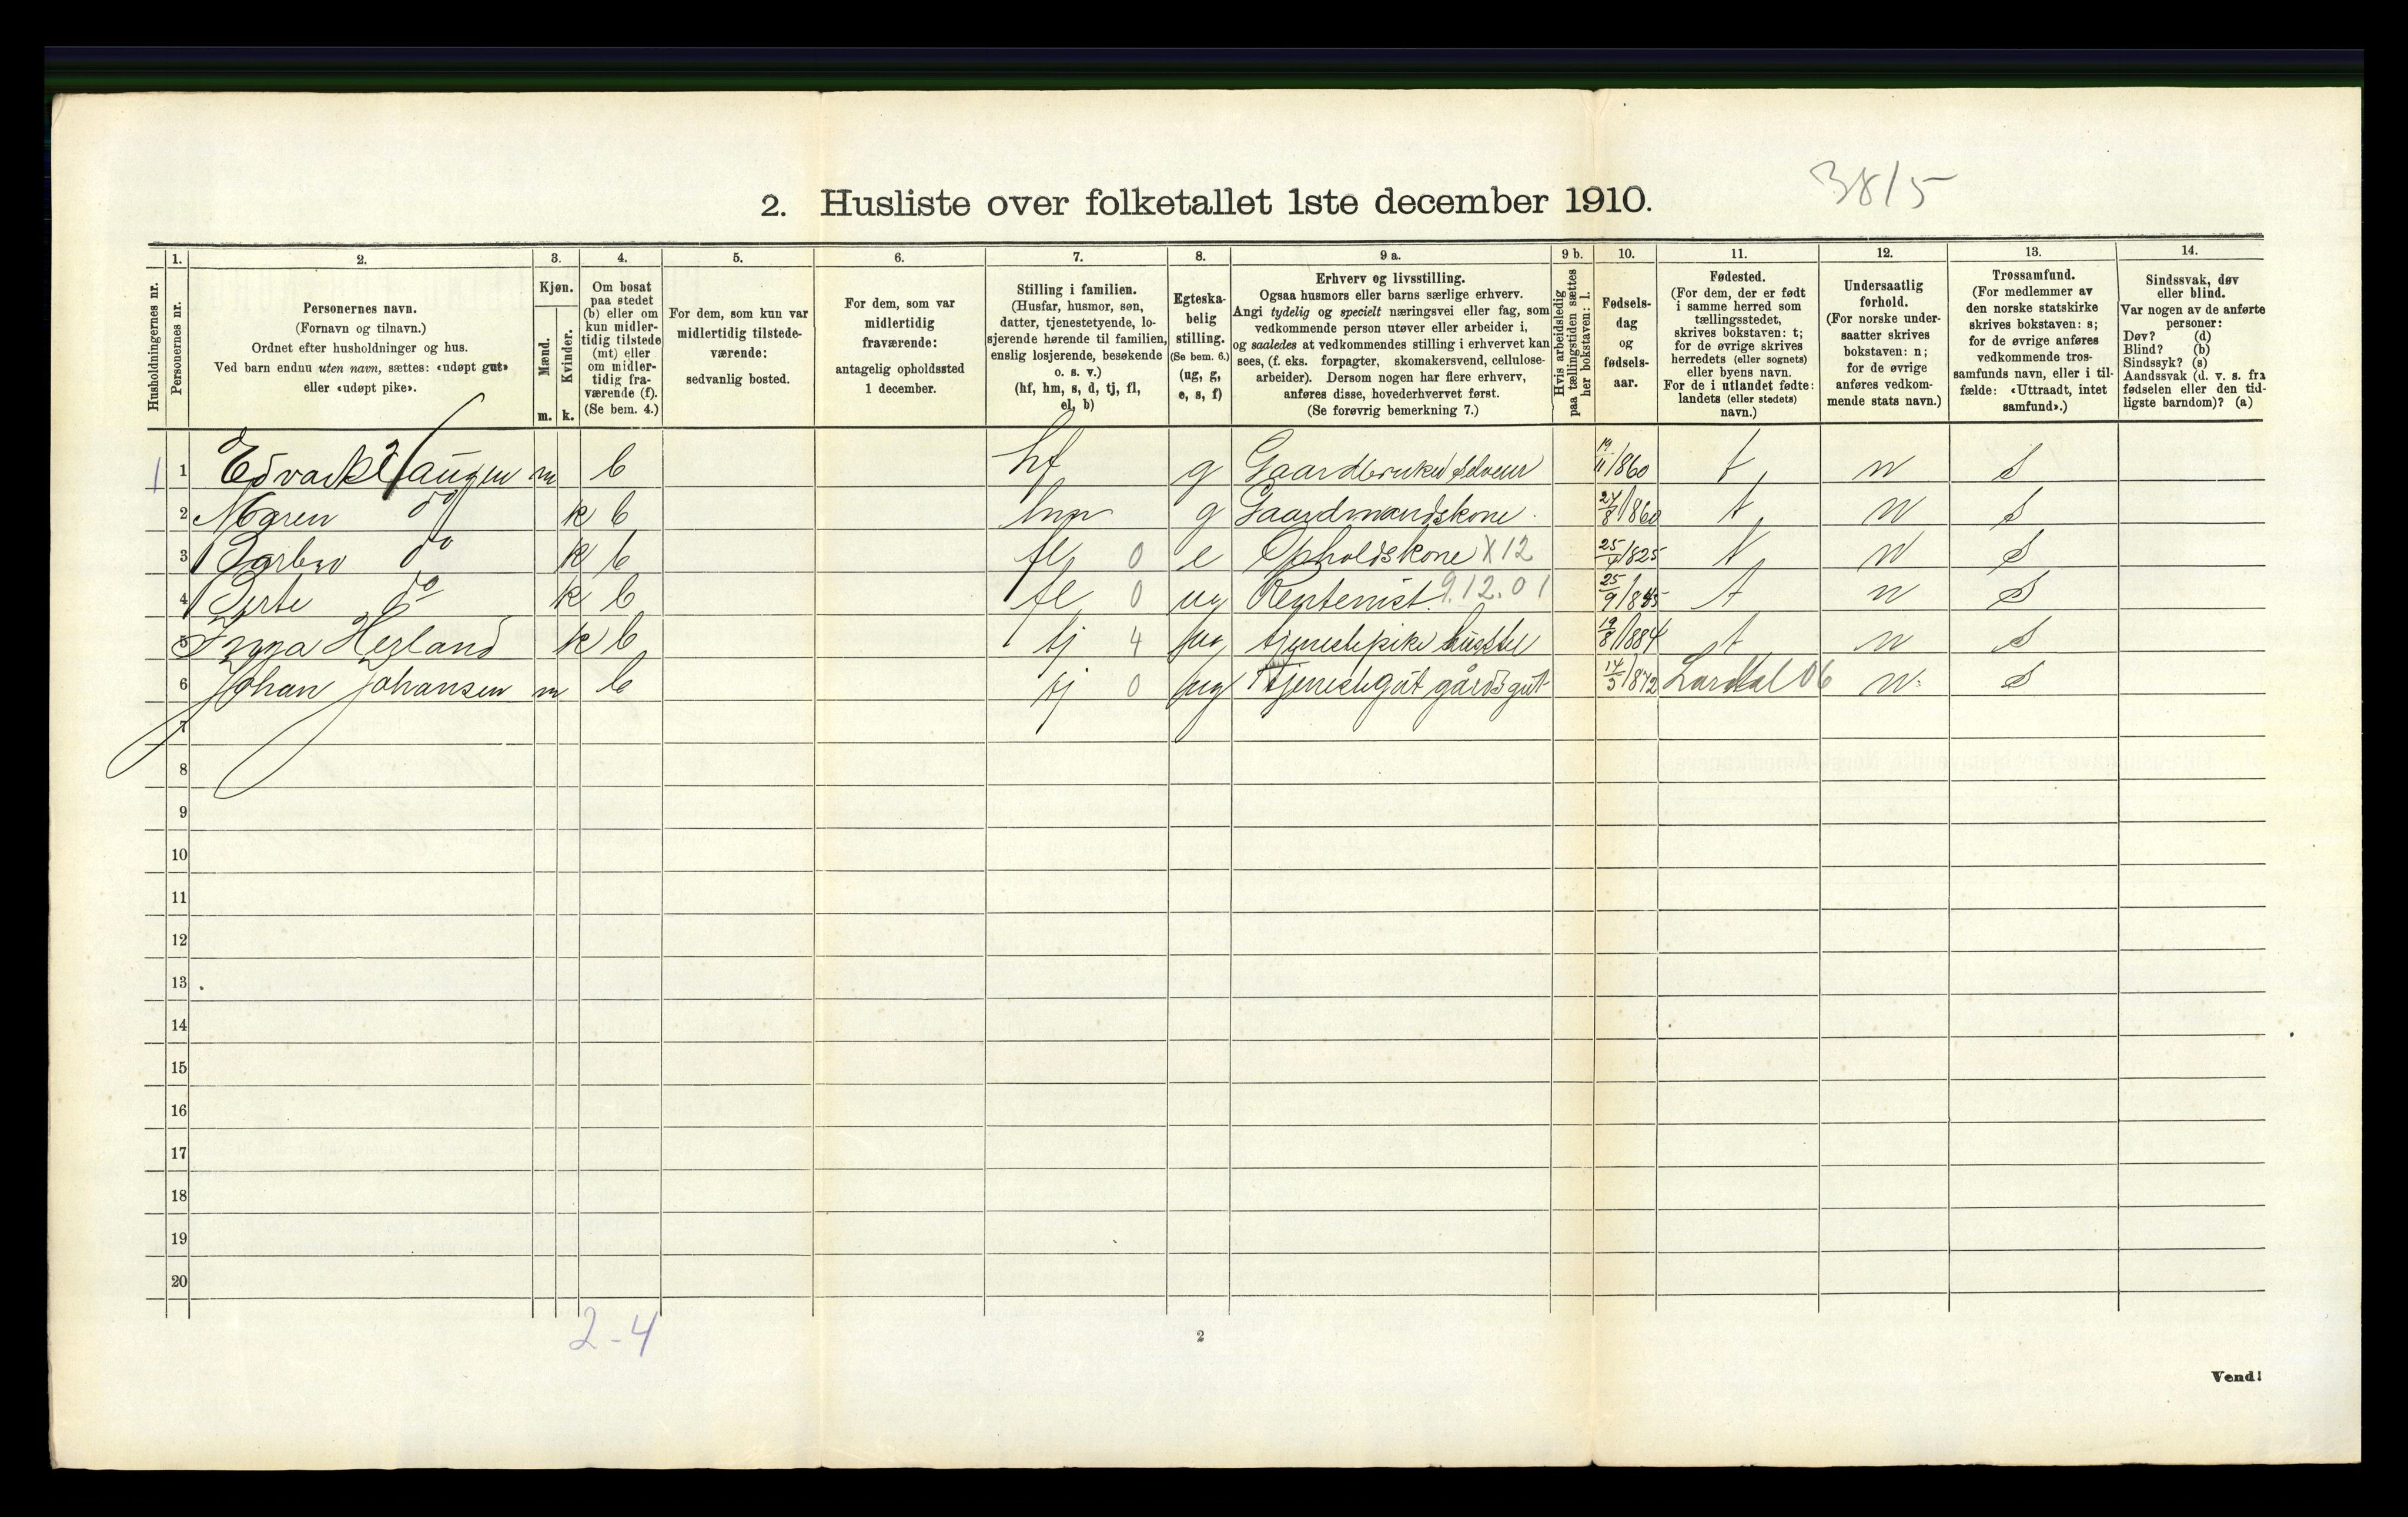 3815
2. Husliste over folketallet 1ste december 1910.
Husholdningernes nr.
1.
Personernes nr.
2.
Personernes navn.
(Fornavn og tilnavn.)
Ordnet efter husholdninger og hus.
Ved barn endnu uten navn, sættes: «udøpt gut»
eller «udøpt pike».
3.
Kjøn.
Mænd.
m.
Kvinder.
k.
4.
Om bosat
paa stedet
(b) eller om
kun midler-
tidig tilstede
(mt) eller
om midler-
tidig fra-
værende (f).
(Se bem. 4.)
5.
For dem, som kun var
midlertidig tilstede-
værende:
sedvanlig bosted.
6.
For dem, som var
midlertidig
fraværende:
antagelig opholdssted
1 december.
7.
Stilling i familien.
(Husfar, husmor, søn,
datter, tjenestetyende, lo-
sjerende hørende til familien,
enslig losjerende, besøkende
o. s. v.)
(hf, hm, s, d, tj, fl,
el, b)
8.
Egteska-
belig
stilling.
(Se bem. 6.)
(ug, g,
e, s, f)
9 a.
Erhverv og livsstilling.
Ogsaa husmors eller barns særlige erhverv.
Angi tydelig og specielt næringsvei eller fag, som
vedkommende person utøver eller arbeider i,
og saaledes at vedkommendes stilling i erhvervet kan
sees, (f. eks. forpagter, skomakersvend, cellulose-
arbeider). Dersom nogen har flere erhverv,
anføres disse, hovederhvervet først.
(Se forøvrig bemerkning 7.)
9 b.
Hvis arbeidsledig
paa tællingstiden sættes
her bokstaven: l.
10.
Fødsels-
dag
og
fødsels-
aar.
11.
Fødested.
(For dem, der er født
i samme herred som
tællingsstedet,
skrives bokstaven: t;
for de øvrige skrives
herredets (eller sognets)
eller byens navn.
For de i utlandet fødte:
landets (eller stedets)
navn.)
12.
Undersaatlig
forhold.
(For norske under-
saatter skrives
bokstaven: n;
for de øvrige
anføres vedkom-
mende stats navn.)
13.
Trossamfund.
(For medlemmer av
den norske statskirke
skrives bokstaven: s;
for de øvrige anføres
vedkommende tros-
samfunds navn, eller i til-
fælde: «Uttraadt, intet
samfund».)
14.
Sindssvak, døv
eller blind.
Var nogen av de anførte
personer:
Døv? (d)
Blind? (b)
Sindssyk? (s)
Aandssvak (d. v. s. fra
fødselen eller den tid-
ligste barndom)? (a)
1 1 Edvard Haugen m b hf g Gaardbruker selveier 19/11 1860 t n s
2 Maren do k b hm g Gaardmandskone 24/8 1860 t n s
3 Barbro do k b fl 0 e Opholdskone X12 25/4 1825 t n s
4 do k b fl 0 ug Rentenist 9.12.01 25/9 t n s
5 Inga Hegland k b tj 4 ug tjenestepike husstel 19/8 1884 t n s
6 Johan Johansen m b tj 0 ug Tjenestegut gårdsgut 14/5 1872 Lardal 06 n s
7
8
9
10
11
12
13
14
15
16
17
18
19
20
2-4
2
Vend!